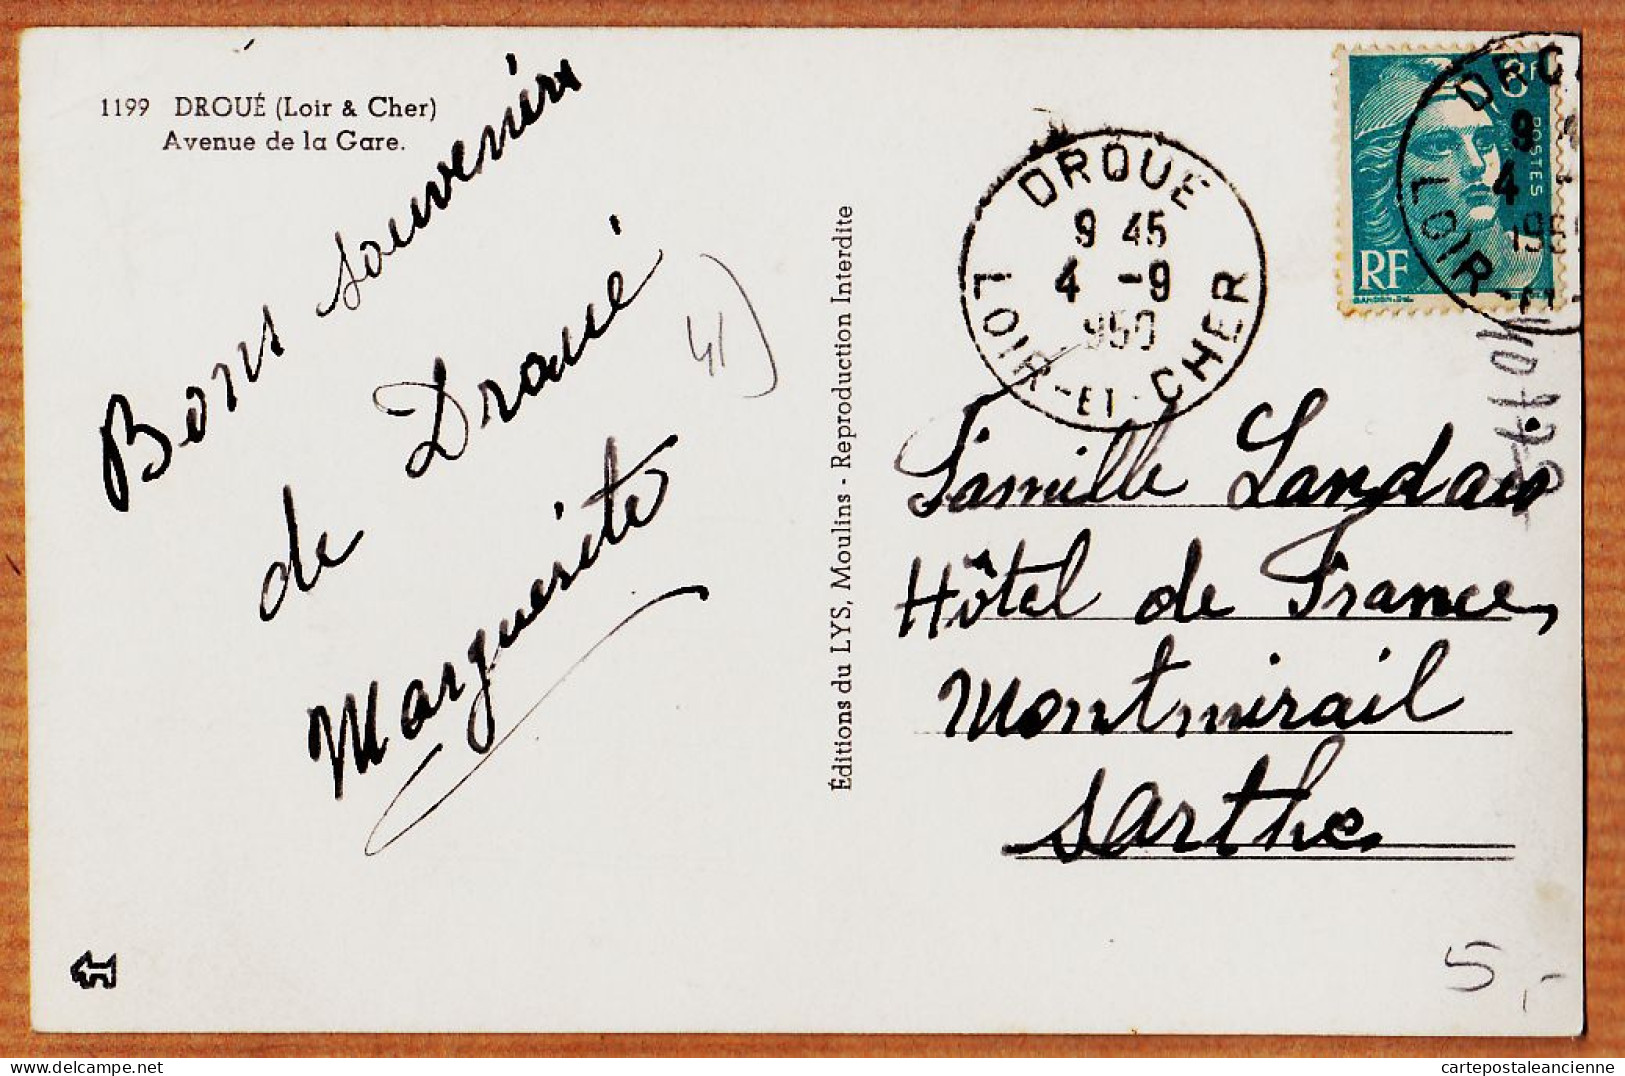 1199 DROUÉ (Loir & Cher)
Avenue de la Gare.
Bons souvenirs
de Droué
Marguerite
41)
Éditions du LYS, Moulins - Reproduction Interdite
DROUE
9 45
4 -9
950
LOIR-ET-CHER
8f
POSTES
RF
DROU
9
4
195
LOIR-ET-
Famille Landais
Hôtel de France,
Montmirail
Sarthe
5,-
cartepostaleancienne